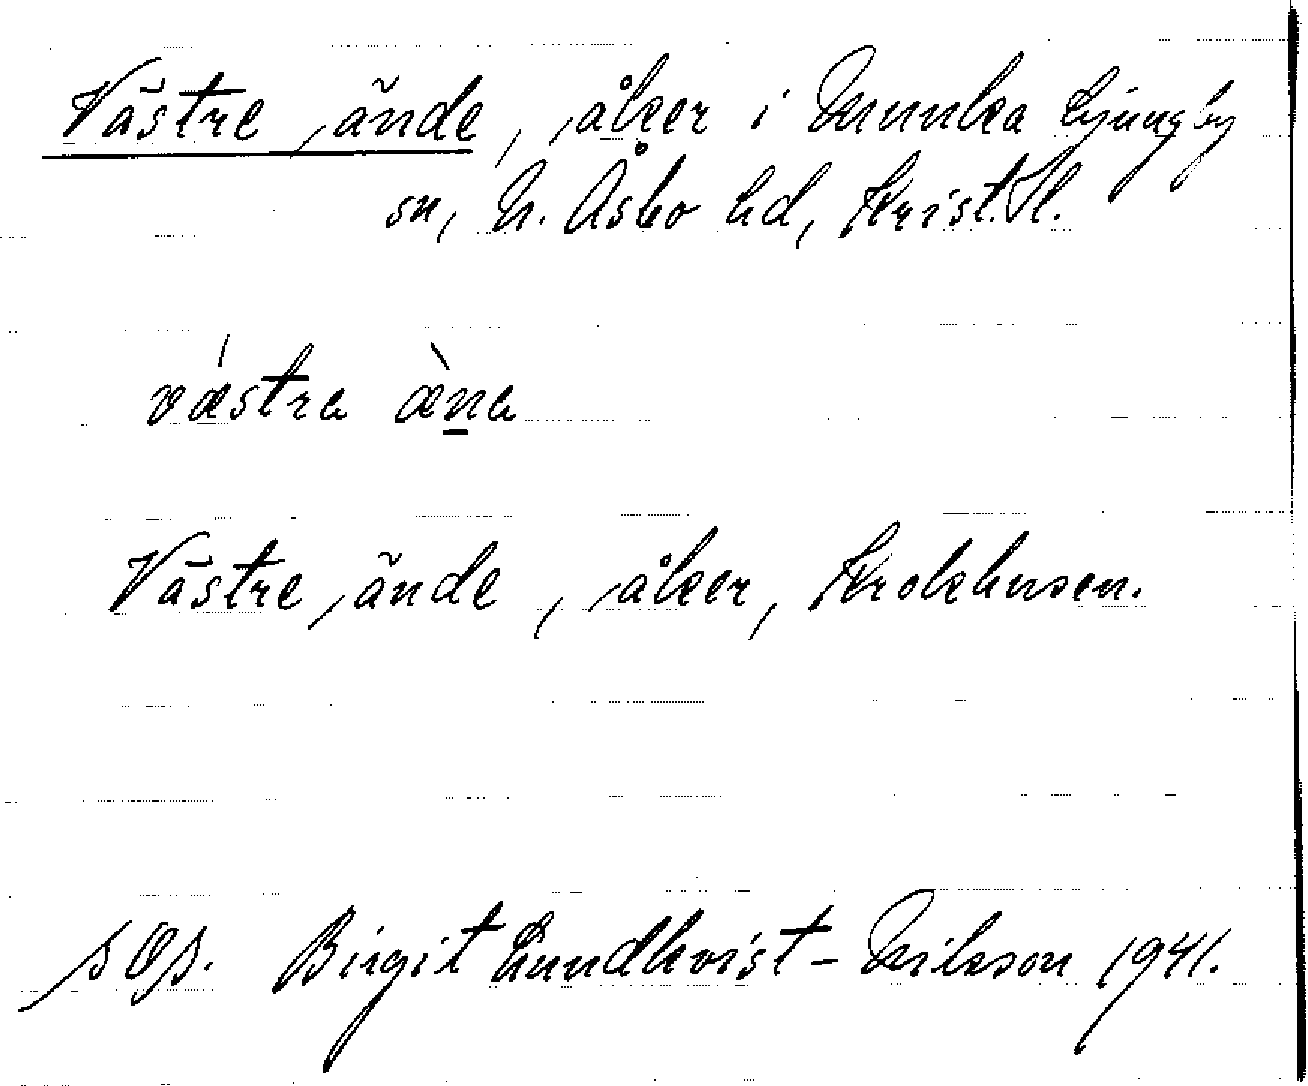 Västre ände, åker i Munka Ljungby
sn, N. Åsbo hd, Krist. l.
vǽstra æ̀n̲a
Västre ände, åker, Krokhusen.
Birgit Lundkvist-Nilsson 1941.